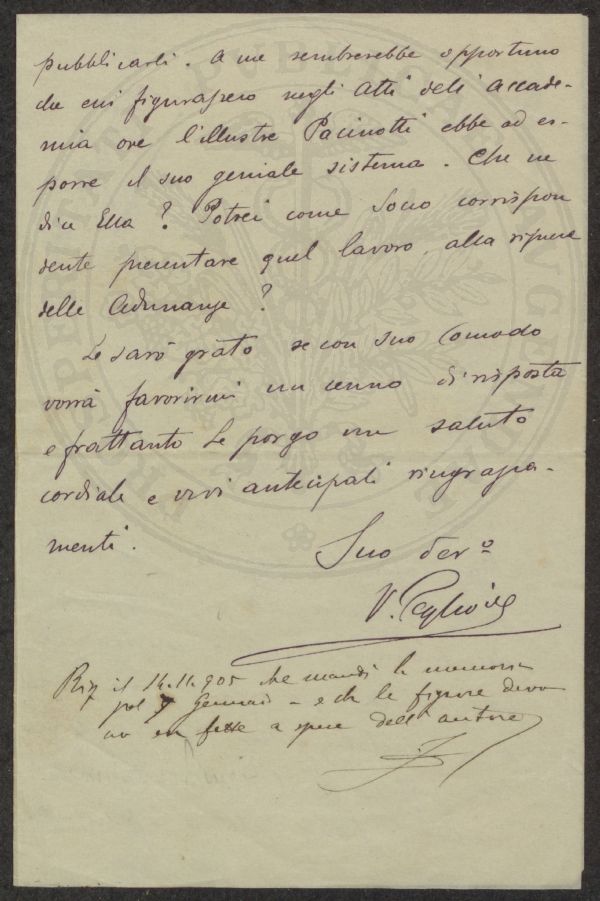 pubblicarli. A me sembrerebbe opportuno
che essi figurassero negli Atti dell'Accade-
mia ove l'illustre Pacinotti ebbe ad es-
porre il suo geniale sistema. Che ne
dice Ella? Potrei come Socio corrispon
dente presentare quel lavoro, alla ripresa
delle Adunanze?
Le sarò grato se con suo comodo
vorrà favorirmi un cenno di risposta
e frattanto Le porgo un saluto
cordiale e vivi anticipati ringrazia-
menti.
Suo dev.o
V. Peglion
Risp il 14.11.905 che mandi la memoria
pel 7 Gennaio - e che le figure devo
no esser fatte a spese dell'autore